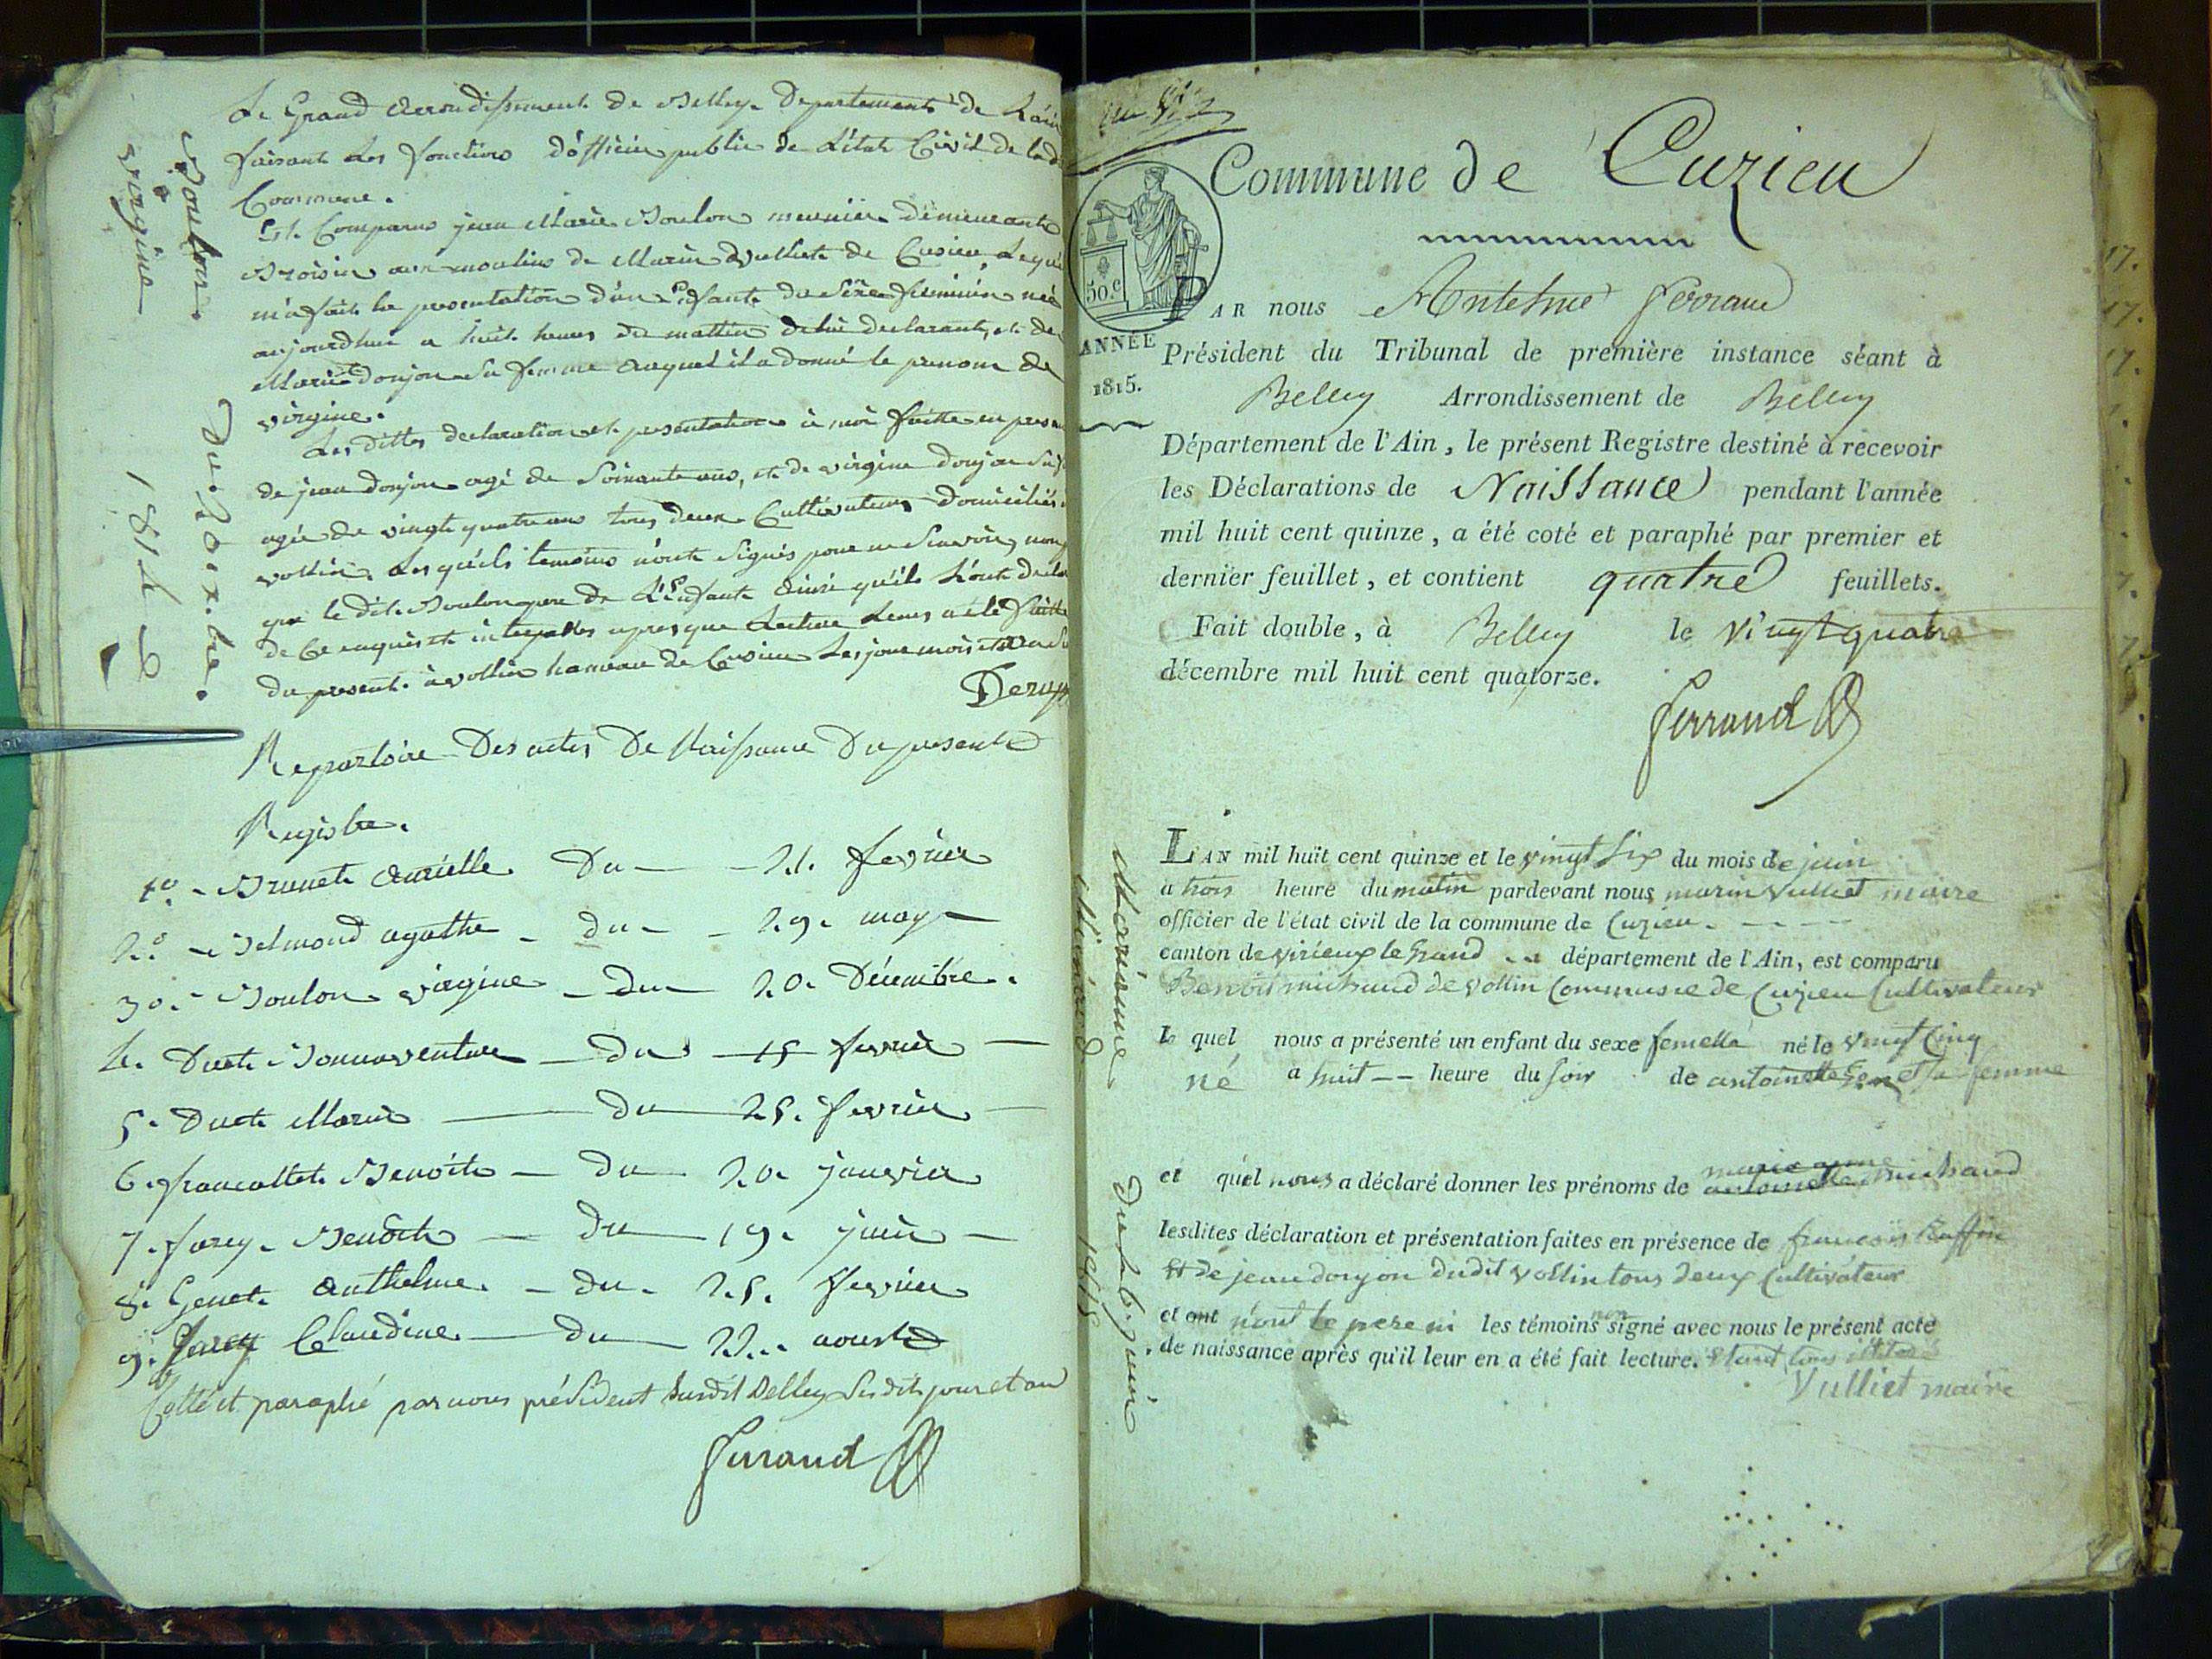 Le Grand arrondissement de Belley. Departement de L'ain
faisant Les fonctions d'officier public de L'état Civil de lad
Commune.
Est Comparus jean Marie Boulon meunier demeurant
aux moulins de Marin Vulliet de Cusieu, Lequel
m'a fait la presentation d'un Enfant du Sexe feminin née
aujourdhui a huit heures du mattin de lui declarant, et de
Marie donjon Sa femme auquel il a donné le prenom de
virgine.
Les dittes declaration et presentation à moi faitte en pres
de jean donjon agé de Soixante ans, et de virgine donjon
agée de vingt quatre ans tous deux Cultivateurs Domiciliés
vollin, Les quels temoins n'ont Signés pour ne Scavoir, non
que le dit Boulon pere de L'Enfant ainsi qu'ils L'ont
de Ce enquis et interpellés apres que Lecture Leurs a été faitte
du present à vollin hameau de Cusieu Les jour mois et an
Boulon
virgine
Du 20 Xbre.
1814
Repertoire Des actes De Naissance Du present
Registre.
1o. Brunet Du 21. fevrier
2o. Belmond agathe du 29. may
3o. Boulon virgine du 20. Décembre.
4. Duet Bonnaventure du 15 fevrier
5. Duet Marie du 25. fevrier
6. francallet Benoite du 20. janvier
7. farey Benoit du 19. juin
8. Genet Anthelme. du. 25. fevrier
9. farey Claudine du 22. aoust
Cotté et paraphé par nous président Susdit Belley Lesdits jour et an
Ferrand
Commune de Cuzieu
50.c
ANNÉE
1815.
PAR nous Antelme ferrand
Président du Tribunal de première instance séant à
Belley Arrondissement de Belley
Département de l'Ain, le présent Registre destiné à recevoir
les Déclarations de Naissance pendant l'année
mil huit cent quinze, a été coté et paraphé par premier et
dernier feuillet, et contient quatre feuillets.
Fait double, à Belley le vingt quatre
décembre mil huit cent quatorze.
ferrand
L'AN mil huit cent quinze et le vingt Six du mois de juin
a trois heure du matin pardevant nous marin vulliet maire
officier de l'état civil de la commune de Cuzieu.
canton de virieux le Grand département de l'Ain, est comparu
Benoit michaud de vollin Commune de Cuzieu Cultivateur
le quel nous a présenté un enfant du sexe femelle né le vingt Cinq
né a huit heure du soir de antoinette Sa femme
et quel nous a déclaré donner les prénoms de marie anne antoinette michaud
lesdites déclaration et présentation faites en présence de françois Ruffin
et de jean donjon dudit vollin tous deux Cultivateur
et ont n'ont le pere ni les témoins non signé avec nous le présent acte
de naissance après qu'il leur en a été fait lecture. étant tous
Vulliet maire
Marianne
Michaud
Du 26. juin
1815